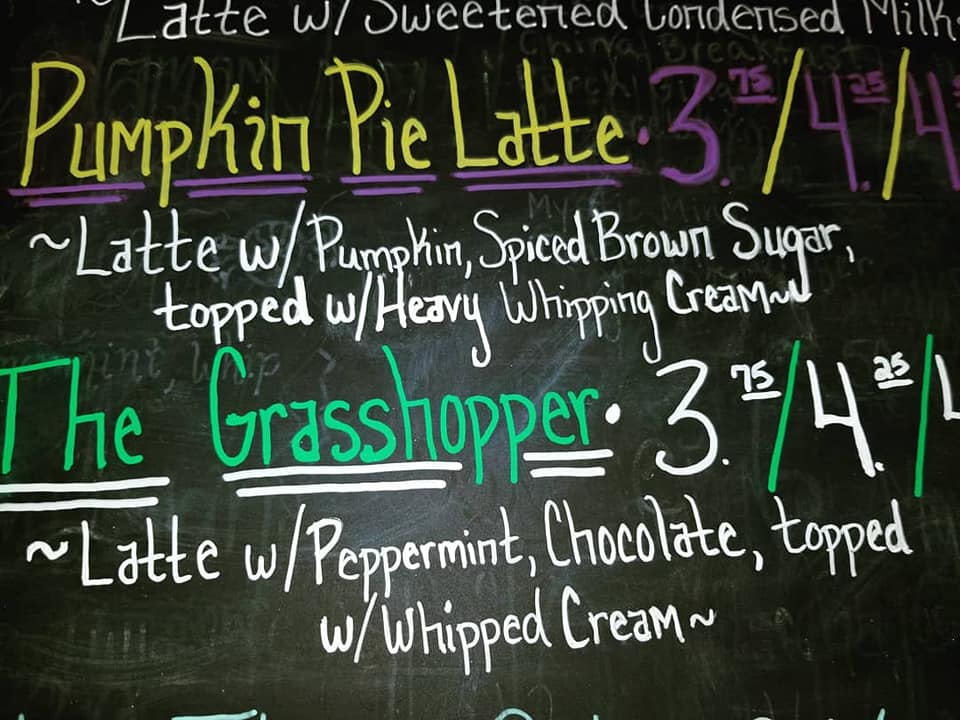 Latte w/Sweetened Condensed Milk
Pumpkin Pie Latte • 3.75/4.25/4.
~Latte w/Pumpkin, Spiced Brown Sugar,
topped w/Heavy Whipping Cream~
The Grasshopper • 3.75/4.25/4
~Latte w/Peppermint, Chocolate, topped
w/Whipped Cream~